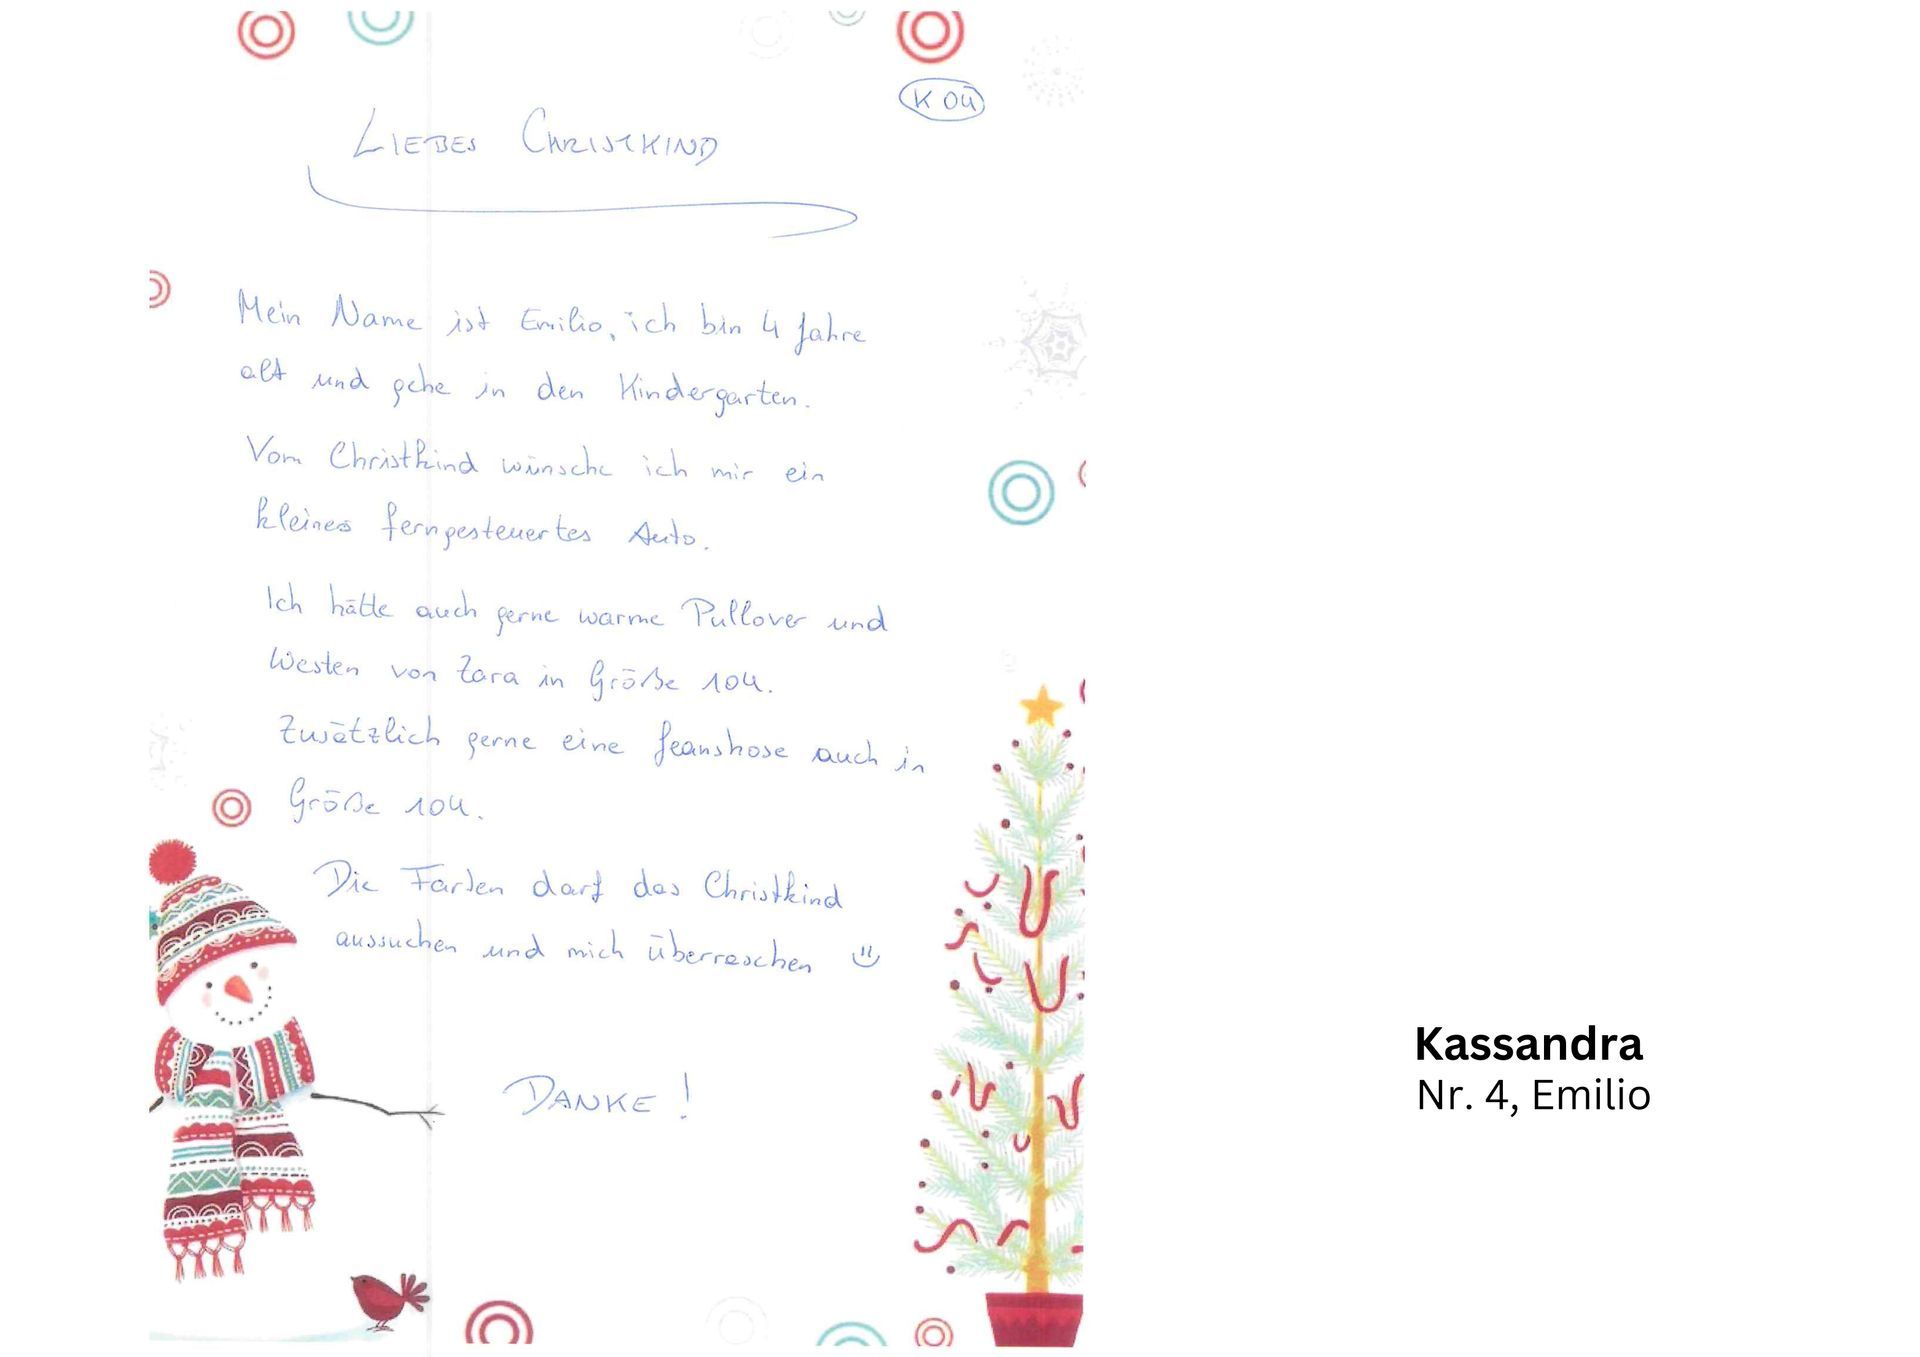 K 04
LIEBES CHRISTKIND
Mein Name ist Emilio, ich bin 4 Jahre
alt und gehe in den Kindergarten.
Vom Christkind wünsche ich mir ein
kleines ferngesteuertes Auto.
Ich hätte auch gerne warme Pullover und
Westen von Zara in Größe 104.
Zusätzlich gerne eine Jeanshose auch in
Größe 104.
Die Farben darf das Christkind
aussuchen und mich überraschen
DANKE!
Kassandra
Nr. 4, Emilio